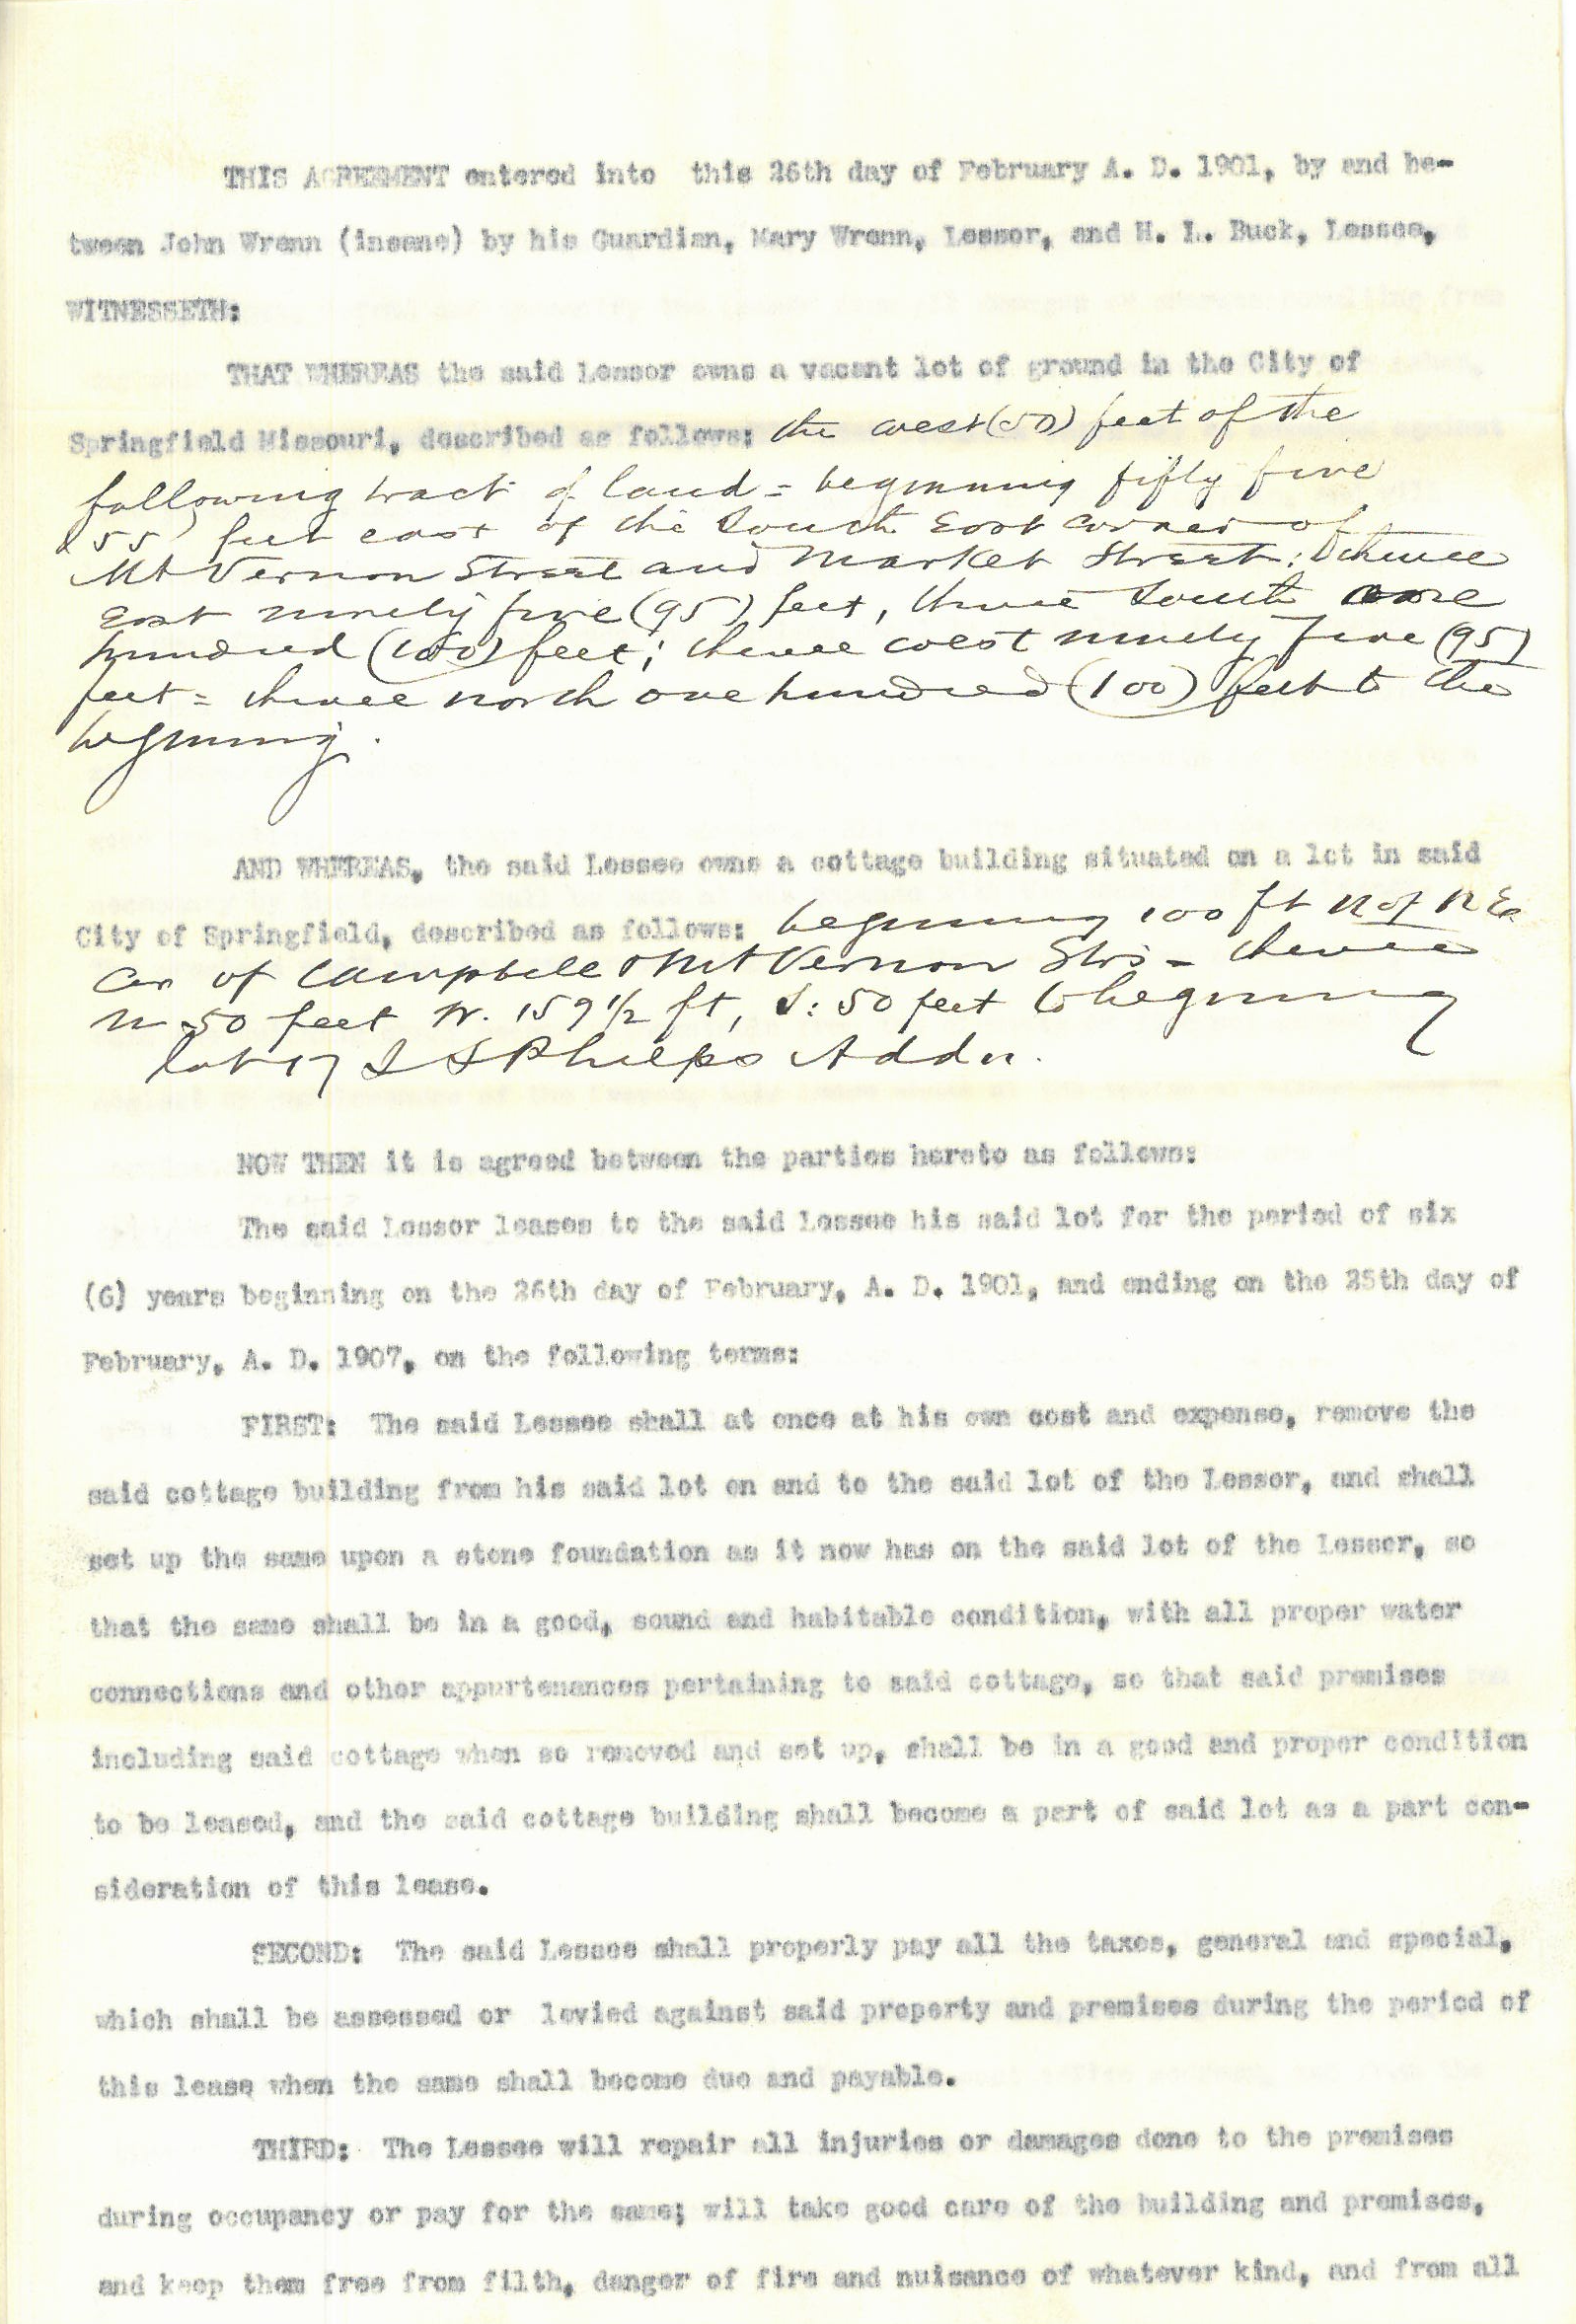 THIS AGREEMENT entered into this 26th day of February A. D. 1901, by and be-
tween John Wrenn (insane) by his Guardian, Mary Wrenn, Lessor, and H. L. Buck, Lessee,
WITNESSETH:
THAT WHEREAS the said Lessor owns a vacant lot of ground in the City of
Springfield Missouri, described as follows: the west (50) feet of the
following tract of land = beginning fifty five
(55) feet east of the South East corner of
Mt Vernon Street and Market Street; thence
East ninety five (95) feet, thence South one
hundred (100) feet; thence west ninety five (95)
feet = thence north one hundred (100) feet to the
beginning.
AND WHEREAS, the said Lessee owns a cottage building situated on a lot in said
City of Springfield, described as follows: beginning 100 ft N of N Ea
Cor of Campbell & Mt Vernon Strs = thence
N 50 feet W. 159 1/2 ft, S: 50 feet to beginning
lot 17 Phelps Addn.
NOW THEN it is agreed between the parties hereto as follows:
The said Lessor leases to the said Lessee his said lot for the period of six
(6) years beginning on the 26th day of February, A. D. 1901, and ending on the 25th day of
February, A. D. 1907, on the following terms:
FIRST: The said Lessee shall at once at his own cost and expense, remove the
said cottage building from his said lot on and to the said lot of the Lessor, and shall
set up the same upon a stone foundation as it now has on the said lot of the Lessor, so
that the same shall be in a good, sound and habitable condition, with all proper water
connections and other appurtenances pertaining to said cottage, so that said premises
including said cottage when so removed and set up, shall be in a good and proper condition
to be leased, and the said cottage building shall become a part of said lot as a part con-
sideration of this lease.
SECOND: The said Lessee shall properly pay all the taxes, general and special,
which shall be assessed or levied against said property and premises during the period of
this lease when the same shall become due and payable.
THIRD: The Lessee will repair all injuries or damages done to the premises
during occupancy or pay for the same; will take good care of the building and premises,
and keep them free from filth, danger of fire and nuisance of whatever kind, and from all